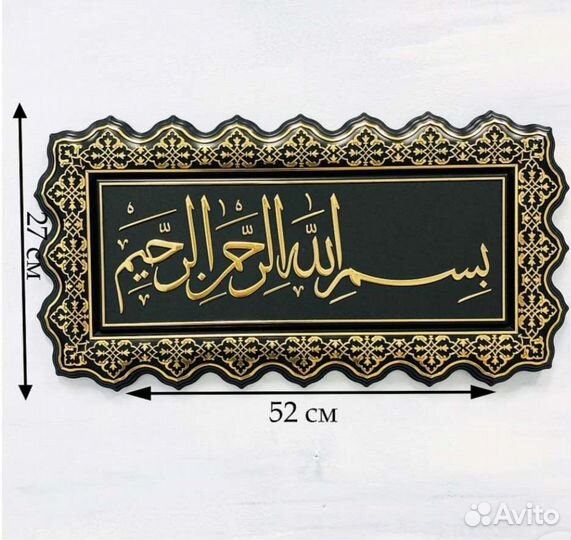 27 см
بِسْمِ اللهِ الرَّحْمٰنِ الرَّحِيْمِ
52 см
Avito